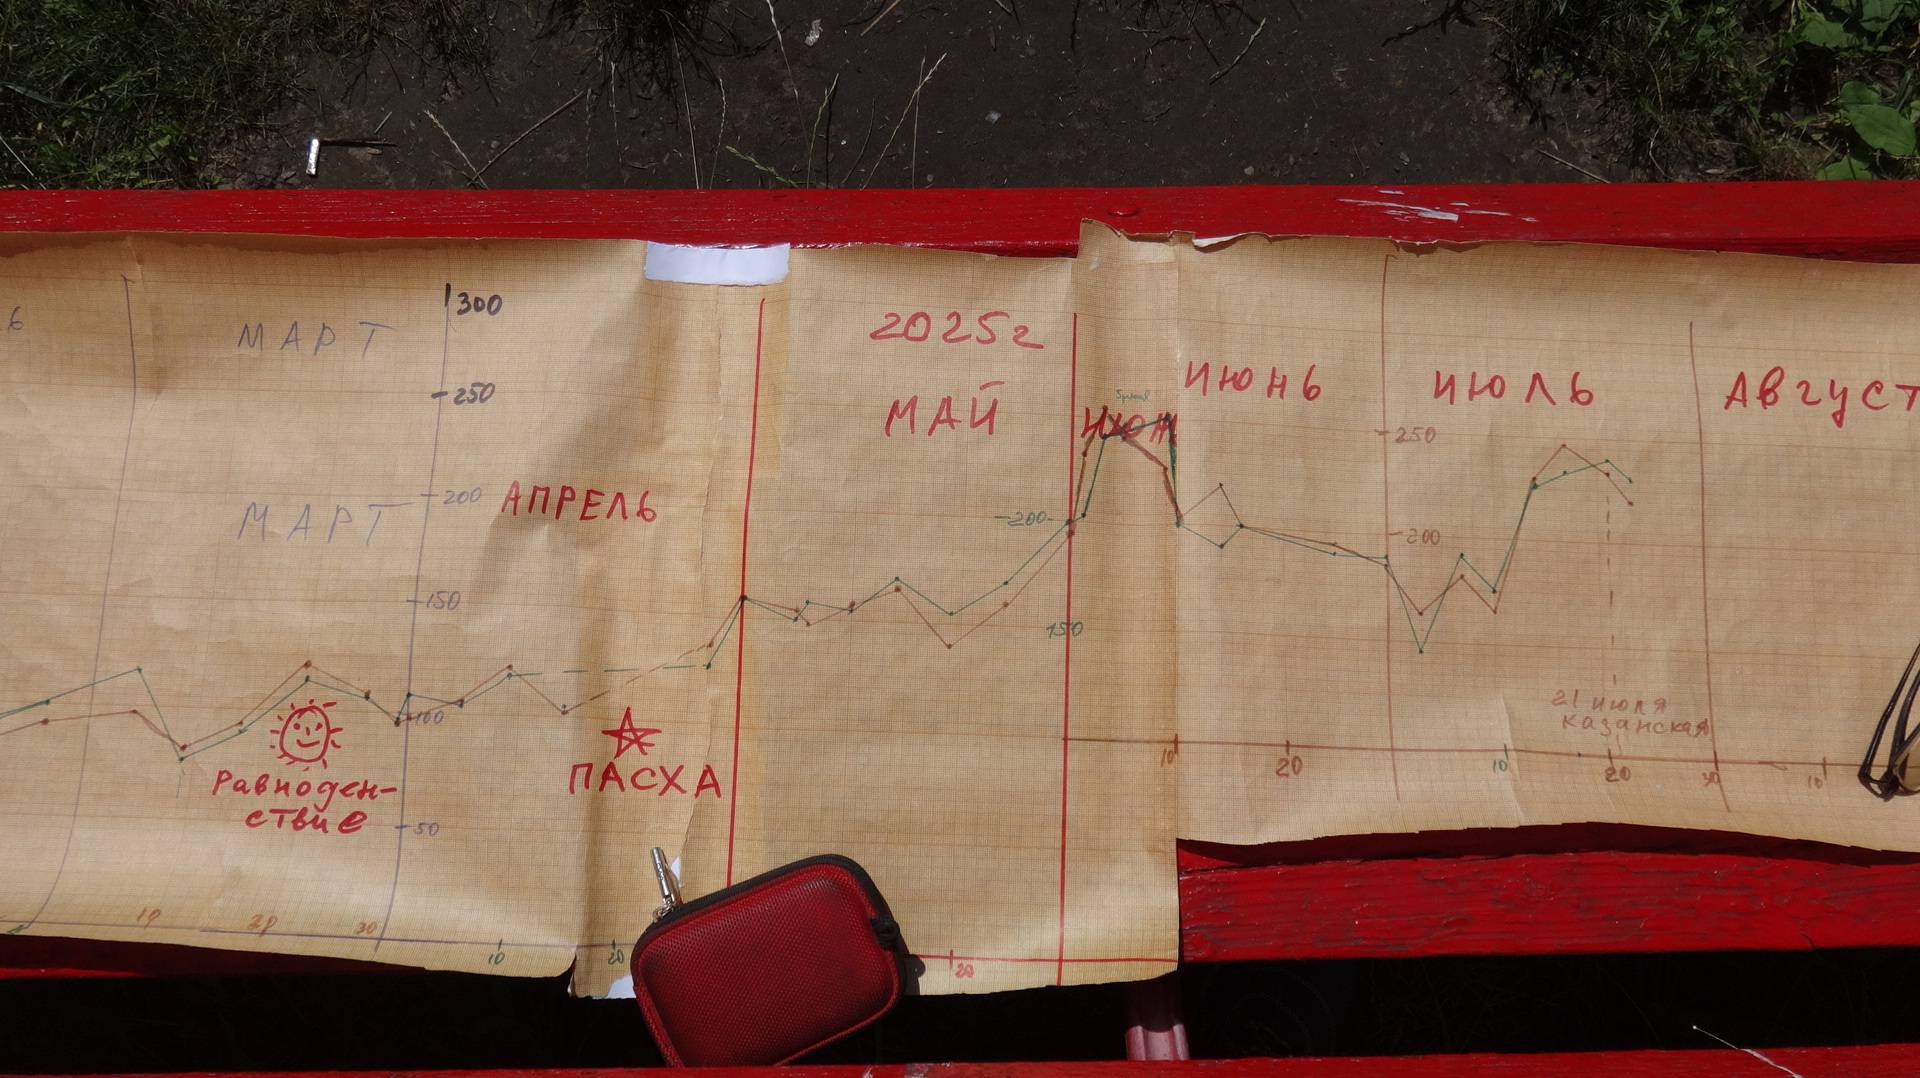 МАРТ
300
250
МАРТ
200
АПРЕЛЬ
150
100
50
Равноден-
ствие
ПАСХА
10
20
30
10
20
2025г
МАЙ
200
150
20
ИЮН
ИЮНЬ
ИЮЛЬ
АВГУСТ
250
200
21 июля
Казанская
10
20
10
20
30
10